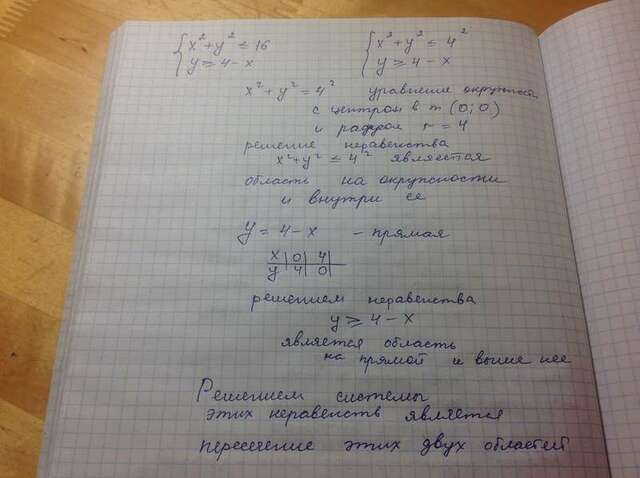 { x² + y² ≤ 16
y ≥ 4 - x
{ x² + y² ≤ 4²
y ≥ 4 - x
x² + y² = 4² уравнение окружности
с центром в т (0; 0)
и радиусом r = 4
решение неравенства
x² + y² ≤ 4² является
область на окружности
и внутри ее
y = 4 - x - прямая
x | 0 | 4 |
y | 4 | 0 |
решением неравенства
y ≥ 4 - x
является область
на прямой и выше нее
Решением системы
этих неравенств является
пересечение этих двух областей